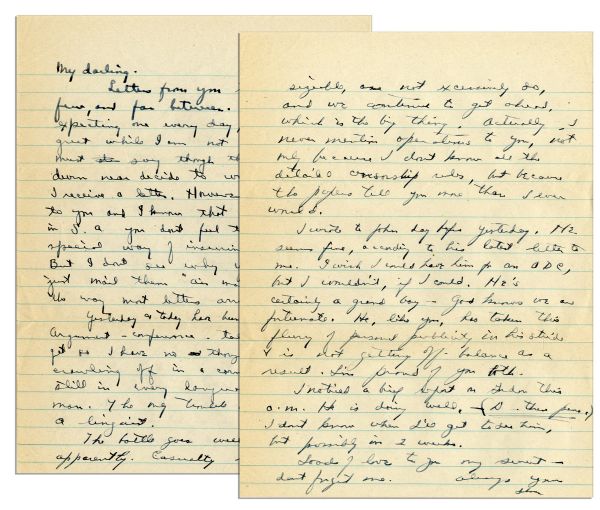 My darling.
Letters from you
few, and far between.
expecting one every day,
great while I am not
must say though th
darn near decide to w
I receive a letter. However
to you and I know that
in S. a you don't feel t
special way of insurin
But I don't see why y
just mail them "air ma
the way most letters arri
Yesterday & today has bee
argument - conference. ta
get so I have no thoug
crawling off in a cor
still in every language
man. Tho my
a linguist.
The battle goes well
apparently. Casualty
sizeable, are not excessively so,
and we continue to get ahead,
which is the big thing. Actually I
never mention operations to you, not
only because I don't know all the
detailed censorship rules, but because
the papers tell you more than I ever
would.
I wrote to John day before yesterday. He
seems fine, according to his latest letter to
me. I wish I could have him for an ADC,
but I wouldn't, if I could. He's
certainly a grand boy - God knows we are
fortunate. He, like you, has taken this
flurry of personal publicity in his stride
& is not getting off-balance as a
result. I'm proud of you both.
I noticed a brief report on this
a.m. He is doing well,
I don't know when I'll get to see him,
but possibly in 2 weeks.
Loads of love to you my sweet -
don't forget me. always your